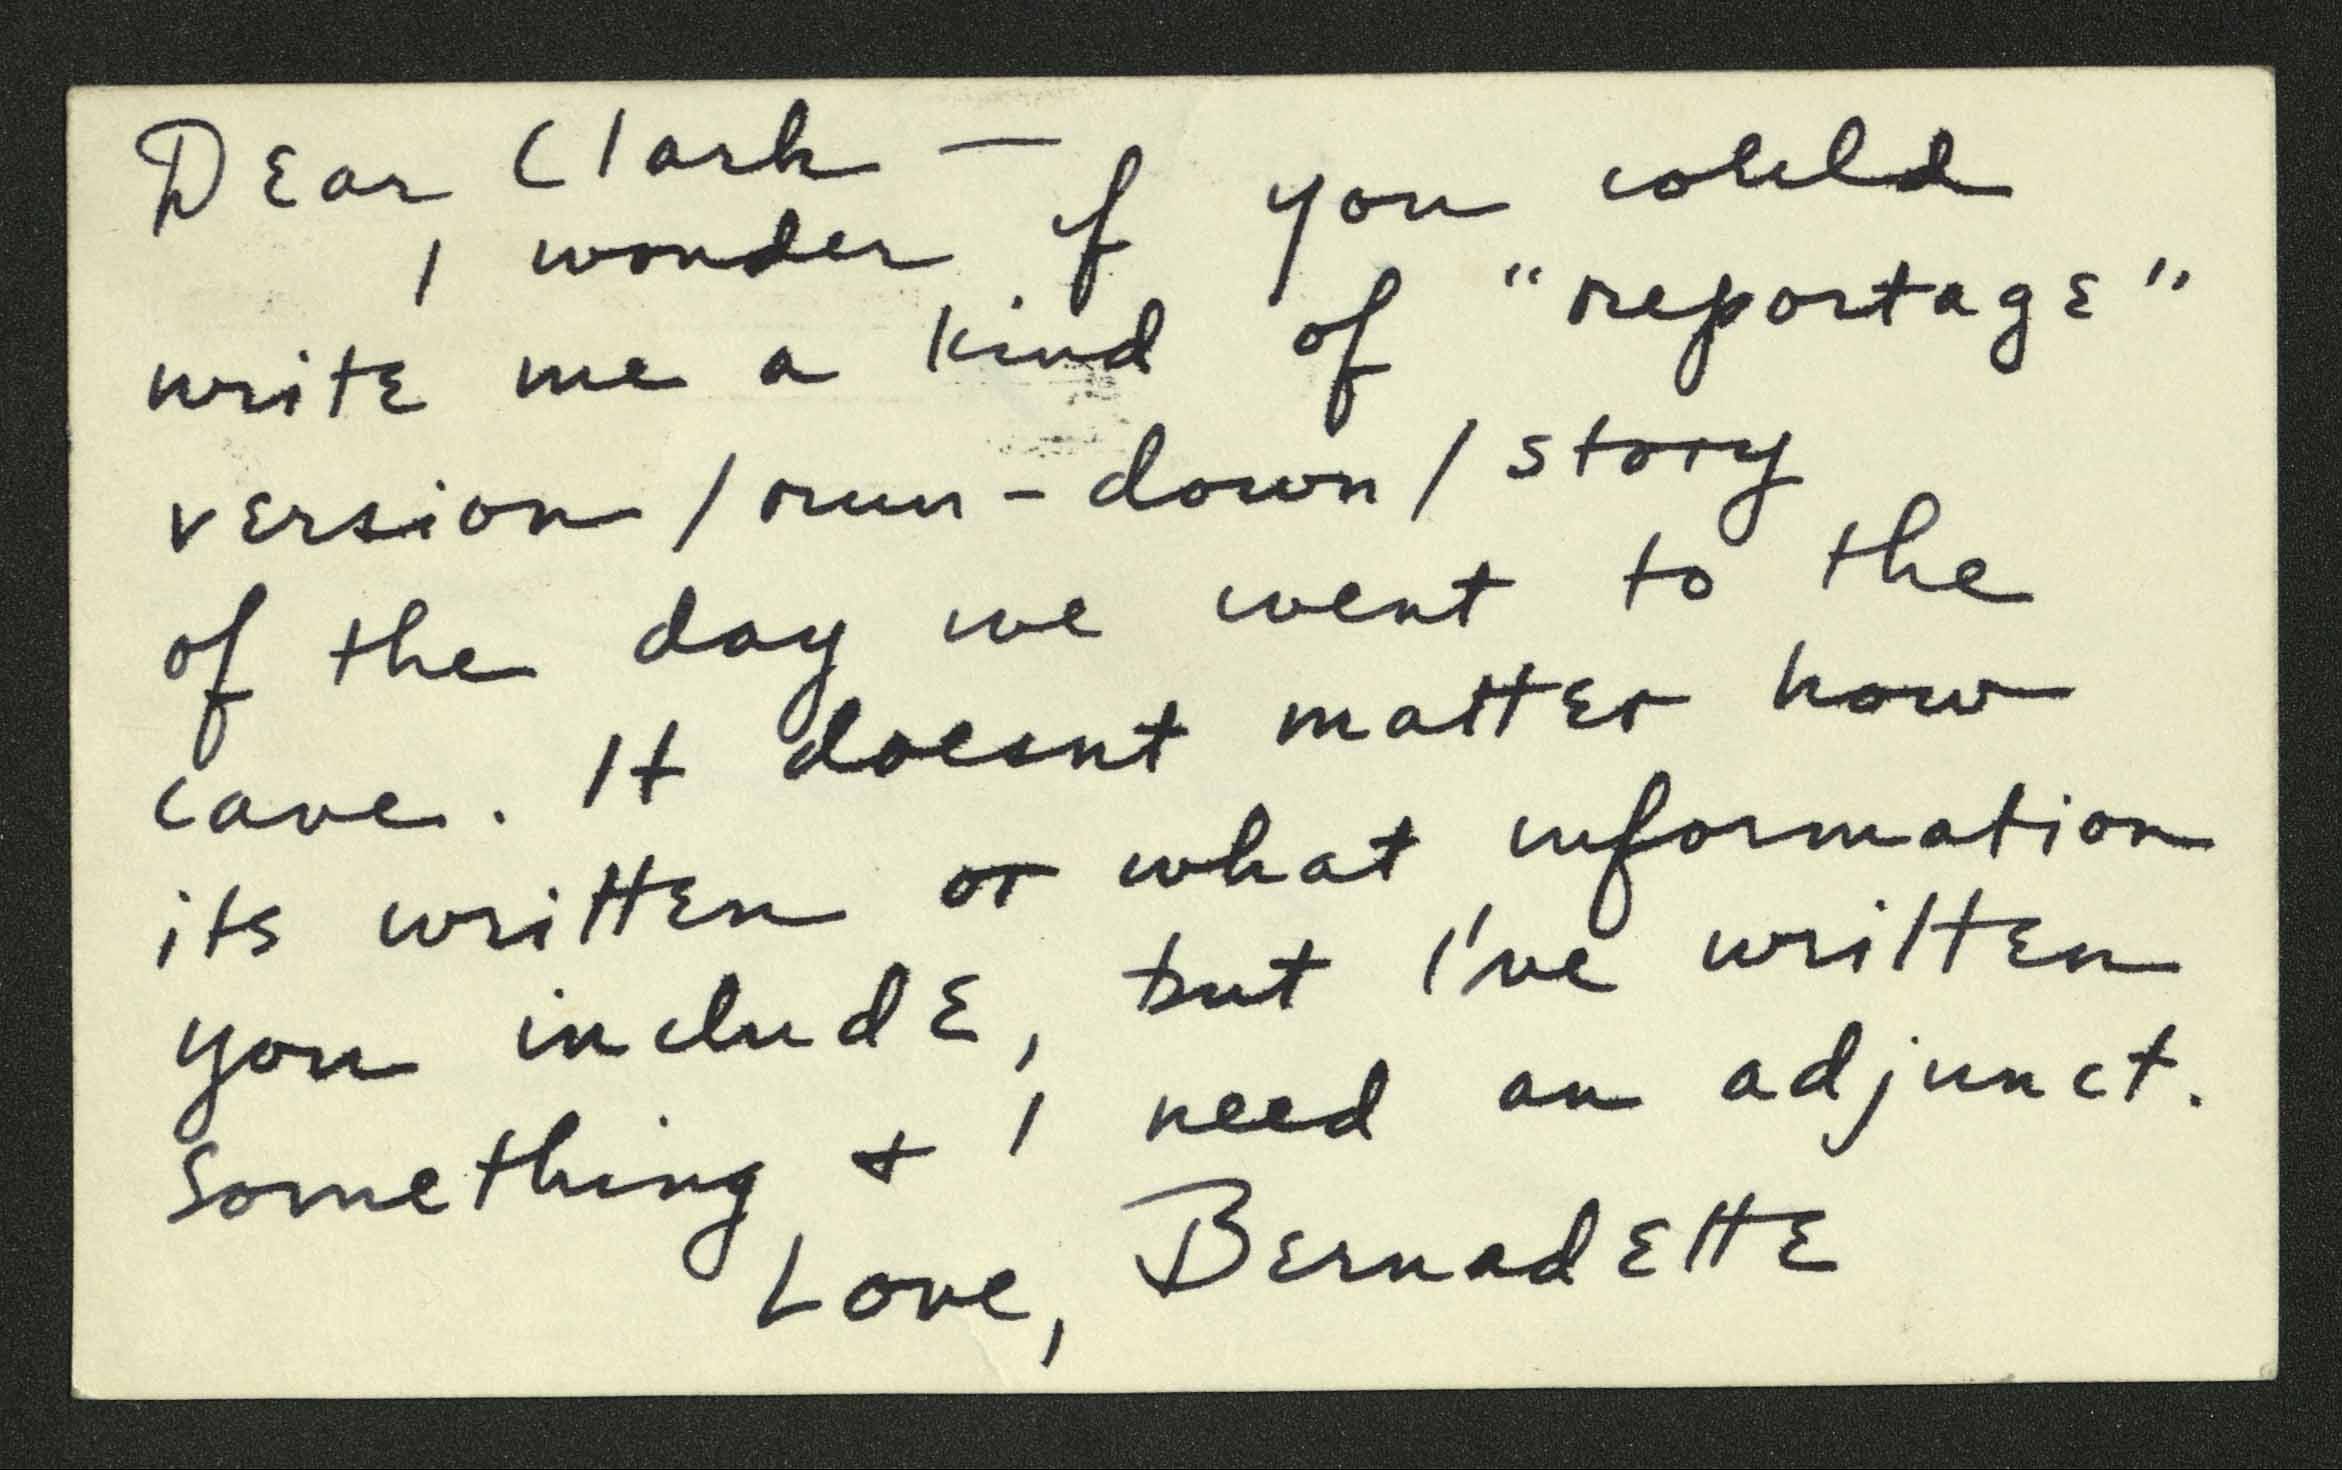 Dear Clark —
I wonder if you could
write me a kind of "reportage"
version / run-down / story
of the day we went to the
cave. It doesnt matter how
its written or what information
you include, but I've written
something + I need an adjunct.
Love, Bernadette